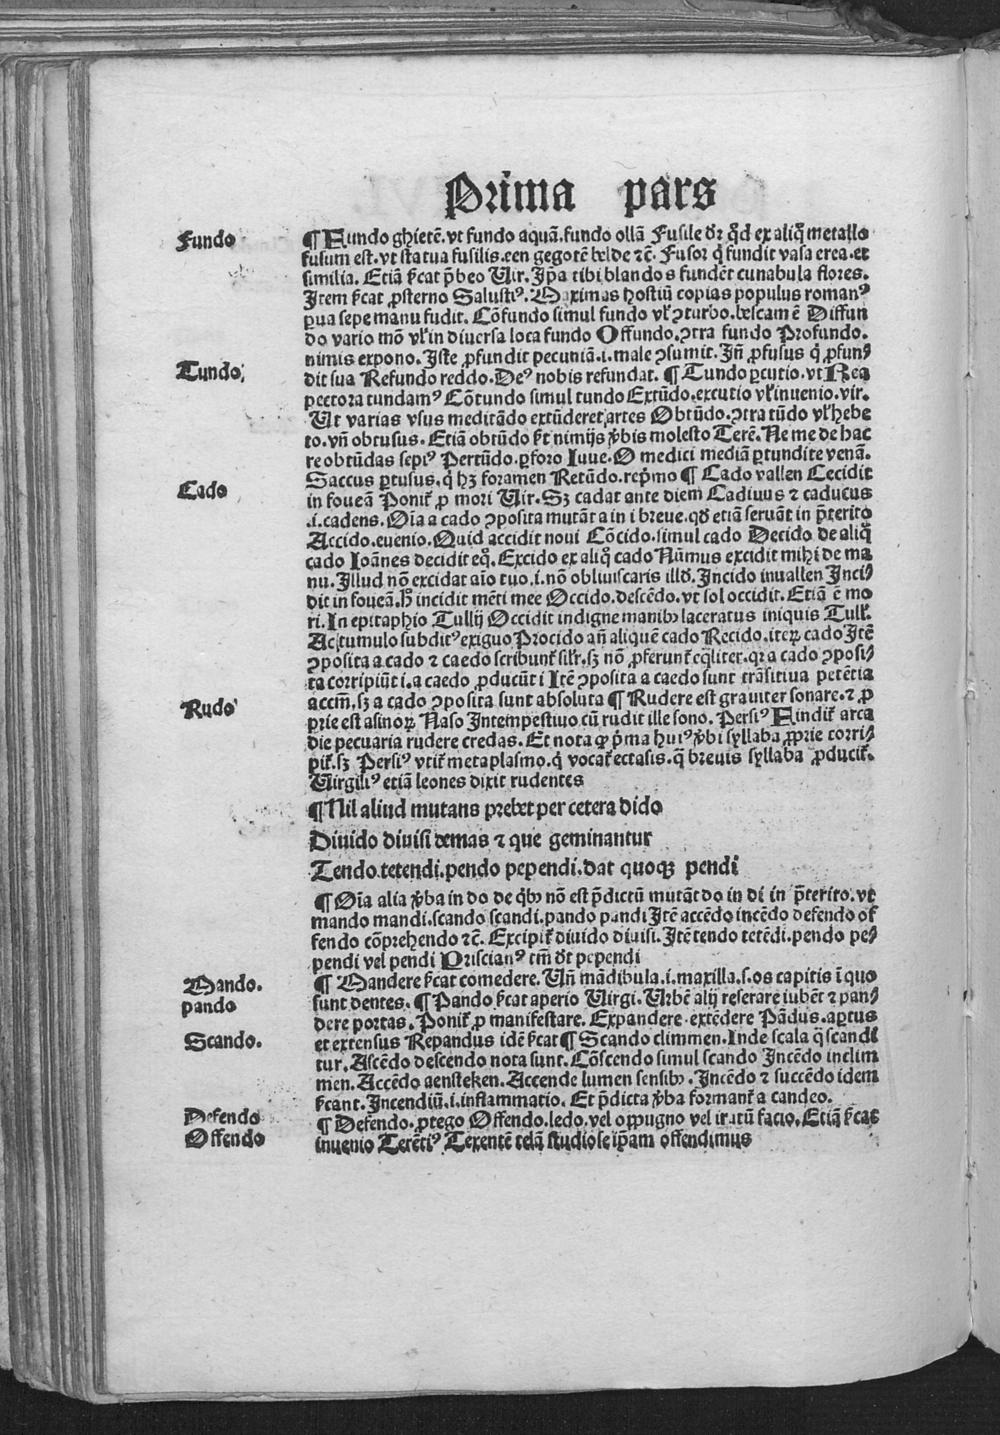 Prima pars
Fundo
¶ Fundo ghietē. vt fundo aquā. fundo ollā Fusile dr̄ qd̄ ex aliq̄ metallo
fusum est. vt statua fusilis. een gegotē belde ⁊c̄. Fusor q̄ fundit vasa erea. et
similia. Etiā ſ̄cat p̄beo Vir. Ip̄a tibi blandos fundēt cunabula flores.
Item ſ̄cat ꝓsterno Salusti⁹. Maximas hostiū copias populus roman⁹
ꝑua sepe manu fudit. Cōfundo simul fundo vl̄ ꝯturbo. bescam ē Diffun
do vario mō vl̄ in diuersa loca fundo Offundo. ꝯtra fundo Profundo.
nimis expono. Iste ꝓfundit pecuniā .i. male ꝯsumit. Iñ ꝓfusus q̄ ꝓfun⸗
Tundo.
dit sua Refundo reddo. De⁹ nobis refundat. ¶ Tundo ꝑcutio. vt Rea
pectora tundam⁹ Cōtundo simul tundo Extūdo. excutio vl̄ inuenio. vir.
Vt varias vsus meditādo extūderet artes Obtūdo. ꝯtra tūdo vl̄ hebe
to. vñ obtusus. Etiā obtūdo ſ̄t nimijs v̄bis molesto Terē. Ne me de hac
re obtūdas sepi⁹ Pertūdo. ꝑforo Iuue. O medici mediā ꝑtundite venā.
Saccus ꝑtusus. q̄ hꝫ foramen Retūdo. rep̄mo ¶ Cado vallen Cecidit
Cado
in foueā Ponit̄ ꝓ mori Vir. Sꝫ cadat ante diem Cadiuus ⁊ caducus
.i. cadens. Oīa a cado ꝯposita mutāt a in i breue. qd̄ etiā seruāt in p̄terito
Accido. euenio. Quid accidit noui Cōcido. simul cado Decido de aliq̄
cado Ioānes decidit eq̄. Excido ex aliq̄ cado Nūmus excidit mihi de ma
nu. Illud nō excidat aīo tuo .i. nō obliuiscaris illd̄. Incido inuallen Inci⸗
dit in foueā. h̄ incidit mēti mee Occido. descēdo. vt sol occidit. Etiā ē mo
ri. In epitaphio Tullij Occidit indigne manibꝫ laceratus iniquis Tull̄.
Ac tumulo subdit⁹ exiguo Procido añ aliquē cado Recido. iterꝝ cado Itē
ꝯposita a cado ⁊ caedo scribunt̄ silr̄. sꝫ nō ꝓferunt̄ eq̄liter. qꝛ a cado ꝯposi⸗
ta corripiūt i. a caedo ꝓducūt i Itē ꝯposita a caedo sunt trāsitiua petētia
accm̄. sꝫ a cado ꝯposita sunt absoluta ¶ Rudere est grauiter sonare. ⁊ ꝓ
Rudo
prie est asinoꝝ Naso Intempestiuo cū rudit ille sono. Persi⁹ Findit̄ arca
die pecuaria rudere credas. Et nota ꝙ p̄ma hui⁹ v̄bi syllaba ꝓprie corri⸗
pit̄. sꝫ Persi⁹ vtit̄ metaplasmo. q̄ vocat̄ ectasis. q̄ breuis syllaba ꝓducit̄.
Virgili⁹ etiā leones dixit rudentes
¶ Nil aliud mutans prebet per cetera dido
Diuido diuisi demas ⁊ que geminantur
Tendo. tetendi. pendo pependi. dat quoqꝫ pendi
¶ Oīa alia v̄ba in do de q̄bꝫ nō est p̄dictū mutāt do in di in p̄terito. vt
mando mandi. scando scandi. pando pandi Itē accēdo incēdo defendo of
fendo cōprehendo ⁊c̄. Excipit̄ diuido diuisi. Itē tendo tetēdi. pendo pe⸗
pendi vel pendi Priscian⁹ tm̄ dt̄ pependi
Mando.
¶ Mandere ſ̄cat comedere. Vñ mādibula .i. maxilla. s. os capitis ī quo
pando
sunt dentes. ¶ Pando ſ̄cat aperio Virgi. Vrbē alij reserare iubēt ⁊ pan⸗
dere portas. Ponit̄ ꝓ manifestare. Expandere. extēdere Pādus. aꝑtus
Scando.
et extensus Repandus idē ſ̄cat ¶ Scando climmen. Inde scala q̄ scandi
tur. Ascēdo descendo nota sunt. Cōscendo simul scando Incēdo inclim
men. Accēdo aensteken. Accende lumen sensibꝫ. Incēdo ⁊ succēdo idem
ſ̄cant. Incendiū .i. inflammatio. Et p̄dicta v̄ba formant̄ a candeo.
Defendo
¶ Defendo. ꝓtego Offendo. ledo. vel oppugno vel iratū facio. Etiā ſ̄cat
Offendo
inuenio Terēti⁹ Texentē telā studiose ip̄am offendimus